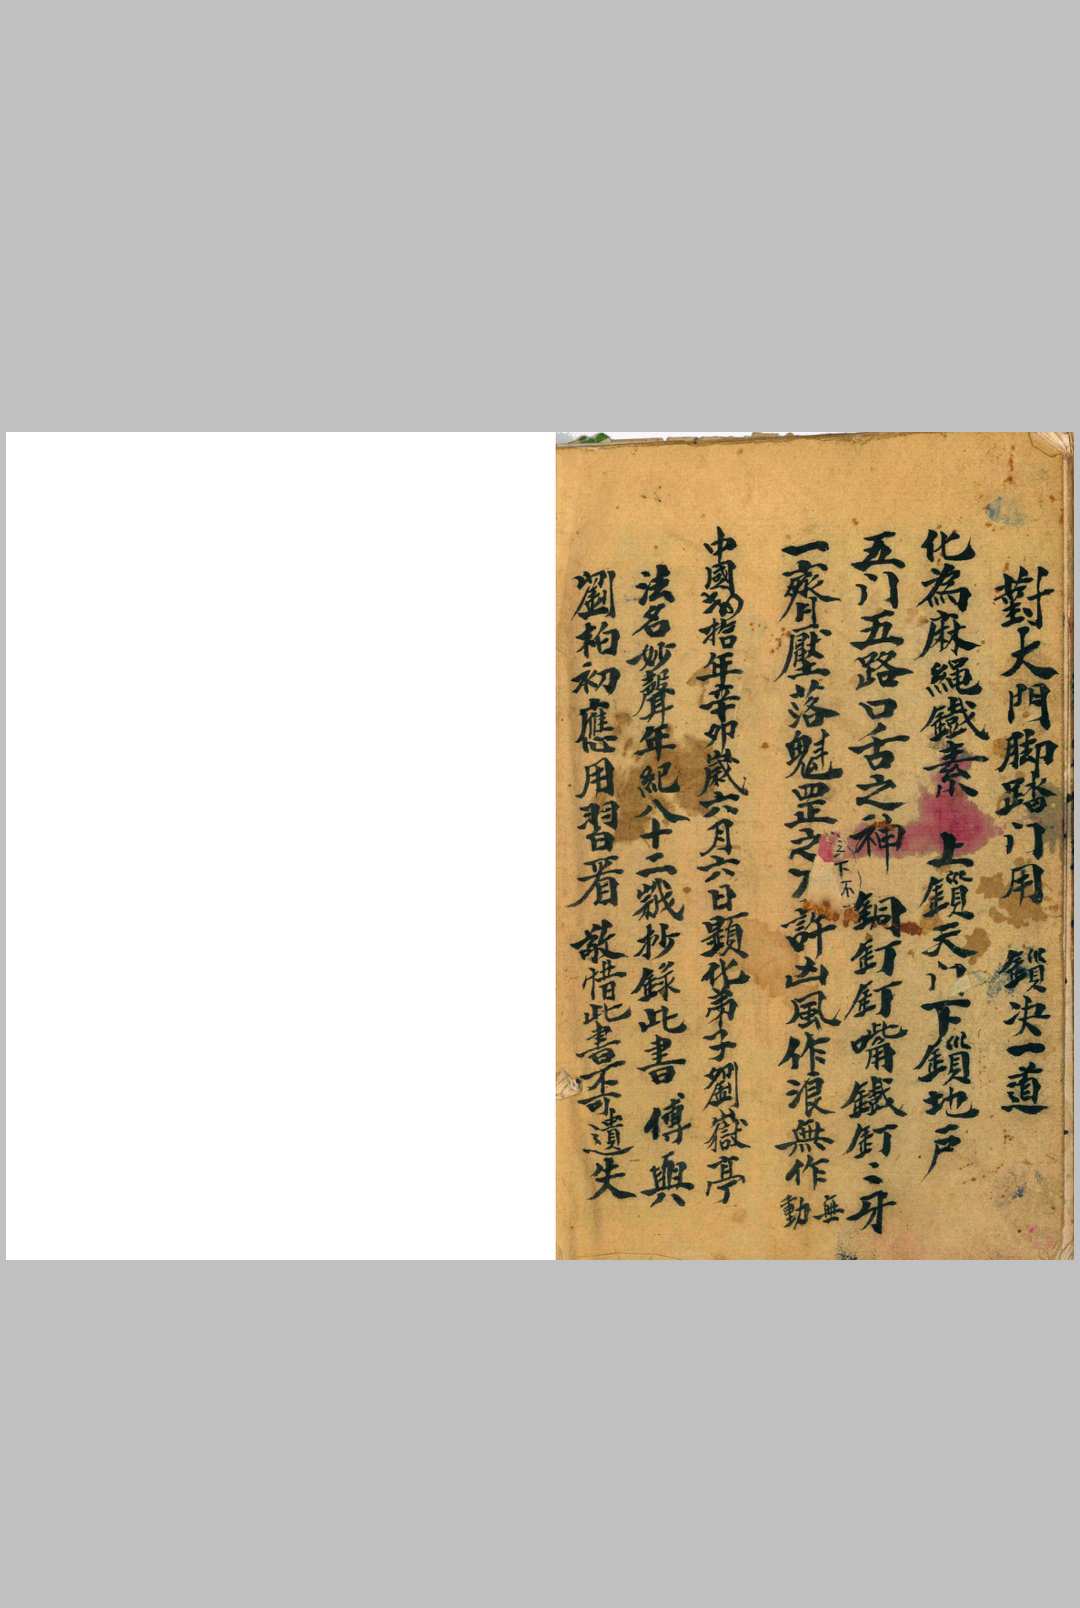 對大門脚踏门用 鎖决一道
化為麻繩鐵素 上鎖天门下鎖地户
五门五路口舌之神 銅釘釘嘴鐵釘〻牙
一齊壓落魁罡之下不許凶風作浪無作無動
中國拾年辛卯歲六月六日顕化弟子劉嶽亭
法名妙聲年紀八十二歲抄錄此書 傅與
劉柏初應用習看 敬惜此書不可遺失